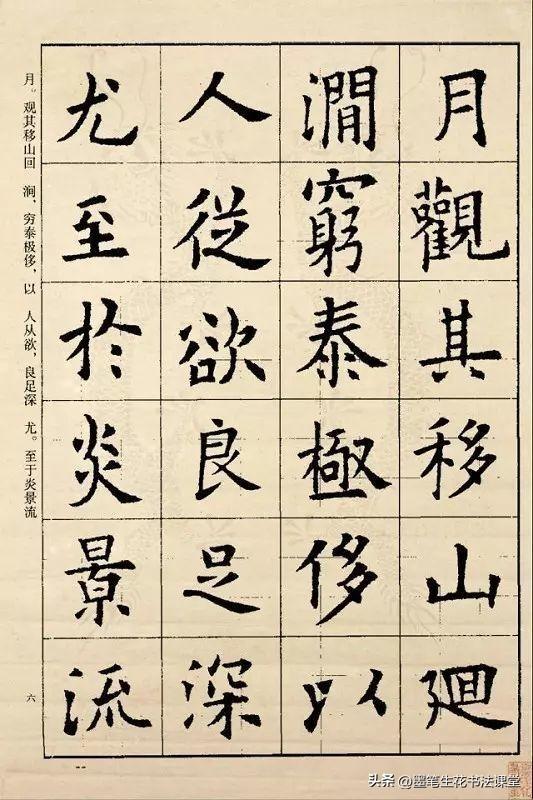 月觀其移山廻
澗窮泰極侈以
人從欲良足深
尤至於炎景流
月。观其移山回 涧，穷泰极侈，以 人从欲，良足深 尤。至于炎景流
六
头条 @墨笔生花书法课堂